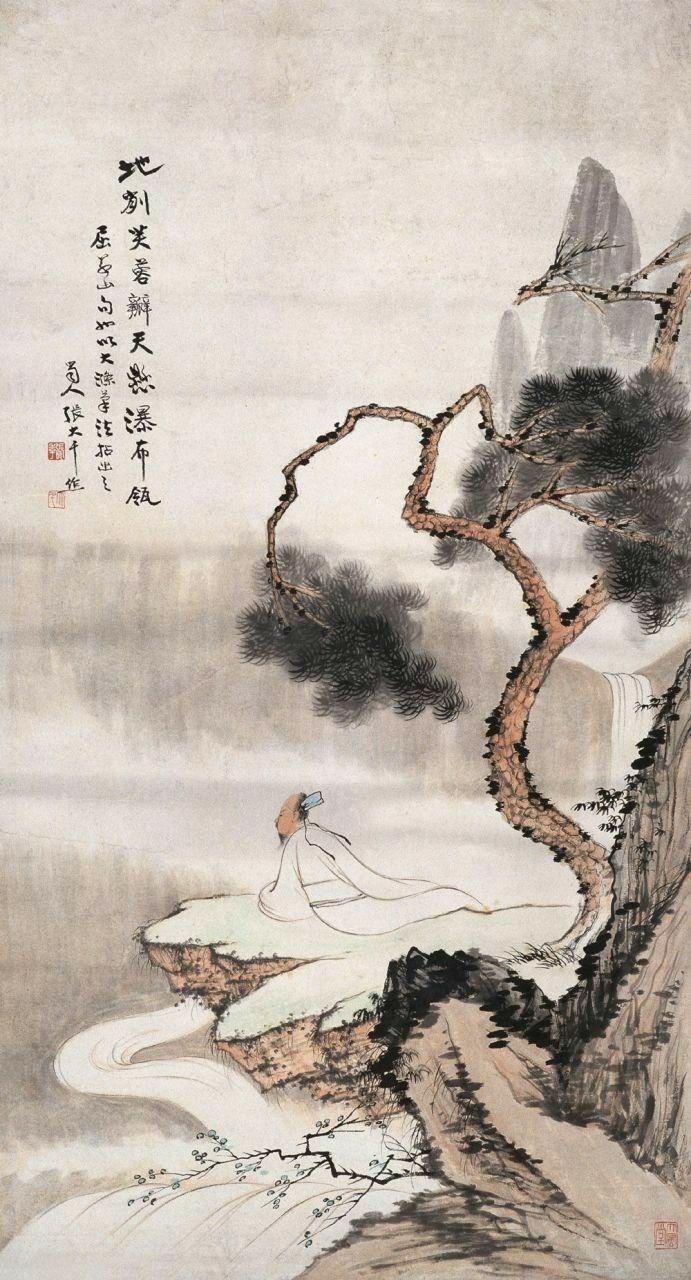 地列芙蓉瓣天懸瀑布瓴
屈翁山句如以大滌筆法拈出之
蜀人張大千作